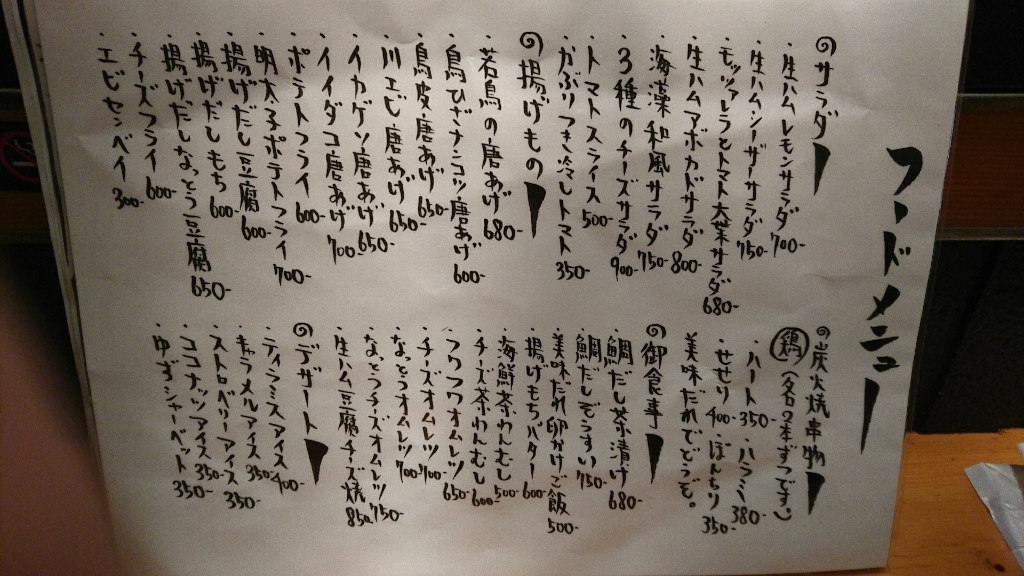 フードメニュー
サラダ
・生ハムレモンサラダ 700-
・生ハムシーザーサラダ 750-
・モッツァレラとトマト大葉サラダ 680-
・生ハムアボカドサラダ 800-
・海藻和風サラダ 750-
・3種のチーズサラダ 900-
・トマトスライス 500-
・かぶりつき冷しトマト 350-
揚げもの
・若鳥の唐あげ 680-
・鳥ひざナンコツ唐あげ 600-
・鳥皮唐あげ 650-
・川エビ唐あげ 650-
・イカゲソ唐あげ 650-
・イイダコ唐あげ 700-
・ポテトフライ 600-
・明太子ポテトフライ 700-
・揚げだし豆腐 600-
・揚げだしもち 600-
・揚げだしなっとう豆腐 650-
・チーズフライ 600-
・エビセンベイ 300-
炭火焼串物
鶏(各2本ずつです。)
・ハート 350-・ハラミ 380-
・せせり 400-・ぼんちり 350-
美味だれでどうぞ。
御食事
・鯛だし茶漬け 680-
・鯛だしぞうすい 750-
・美味だれ卵かけご飯 500-
・揚げもちバター 600-
・海鮮茶わんむし 500-
・チーズ茶わんむし 600-
・フワフワオムレツ 650-
・チーズオムレツ 700-
・なっとうオムレツ 700-
・なっとうチーズオムレツ 750-
・生ハム豆腐チーズ焼 850-
デザート
・ティラミスアイス 400-
・キャラメルアイス 350-
・ストロベリーアイス 350-
・ココナッツアイス 350-
・ゆずシャーベット 350-